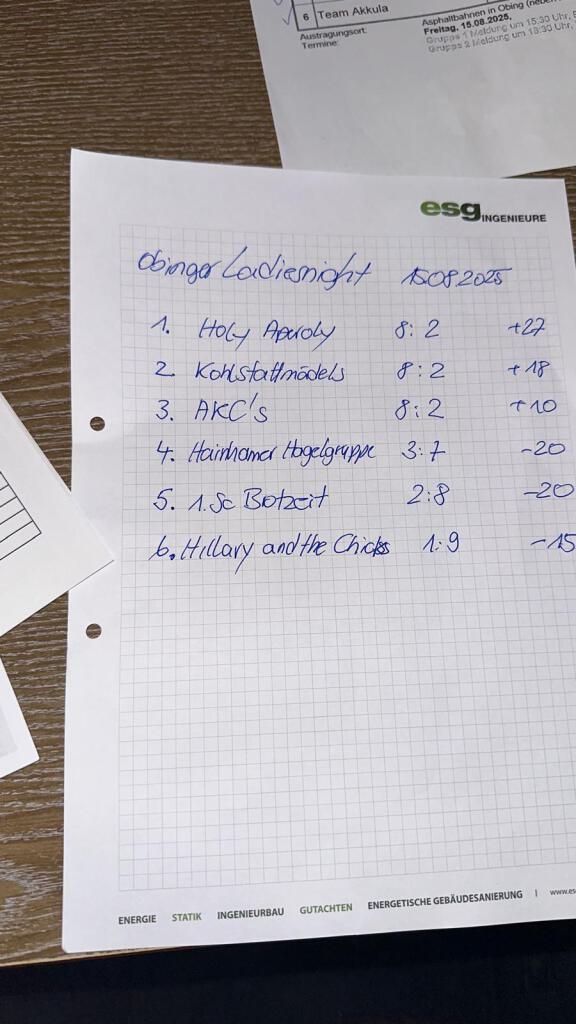 6 Team Akkula
Austragungsort:
Termine:
Asphaltbahnen in Obing (neben
Freitag, 15.08.2025,
Gruppe 1 Meldung um 15:30 Uhr,
Gruppe 2 Meldung um 18:30 Uhr,
esg INGENIEURE
Obinger Ladiesnight 15.08.2025
1. Holy Aperoly 8:2 +27
2. Kohlstattmädels 8:2 +18
3. AKC's 8:2 +10
4. Hainhamer Hogelgruppe 3:7 -20
5. 1. Sc Botzeit 2:8 -20
6. Hillary and the Chicks 1:9 -15
ENERGIE STATIK INGENIEURBAU GUTACHTEN ENERGETISCHE GEBÄUDESANIERUNG | www.es